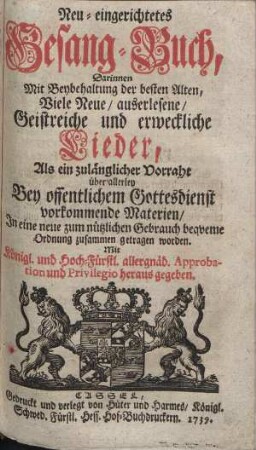 Neu-eingerichtetes
Gesang-Buch,
Darinnen
Mit Beybehaltung der besten Alten,
Viele Neue/ auserlesene/
Geistreiche und erweckliche
Lieder,
Als ein zulänglicher Vorraht
über allerley
Bey offentlichem Gottesdienst
vorkommende Materien/
In eine neue zum nützlichen Gebrauch beqveme
Ordnung zusammen getragen worden.
Mit
Königl. und Hoch-Fürstl. allergnäd. Approba-
tion und Privilegio heraus gegeben.
CASSEL,
Gedruckt und verlegt von Hüter und Harmes, Königl.
Schwed. Fürstl. Hess. Hof-Buchdruckern. 1739.